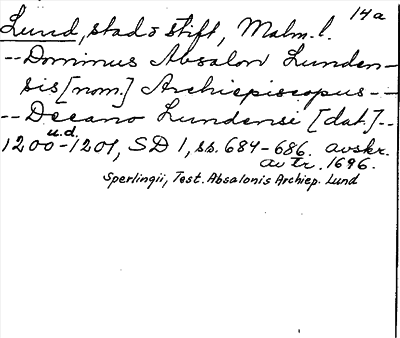 14a
Lund, stad o stift, Malm. l.
-- Dominus Absalon Lunden-
sis [nom.] Archiepiscopus --
-- Decano Lundensi [dat.] --
u.d.
1200-1201, SD 1, ss. 684-686. avskr.
av tr. 1696.
Sperlingii, Test. Absalonis Archiep. Lund